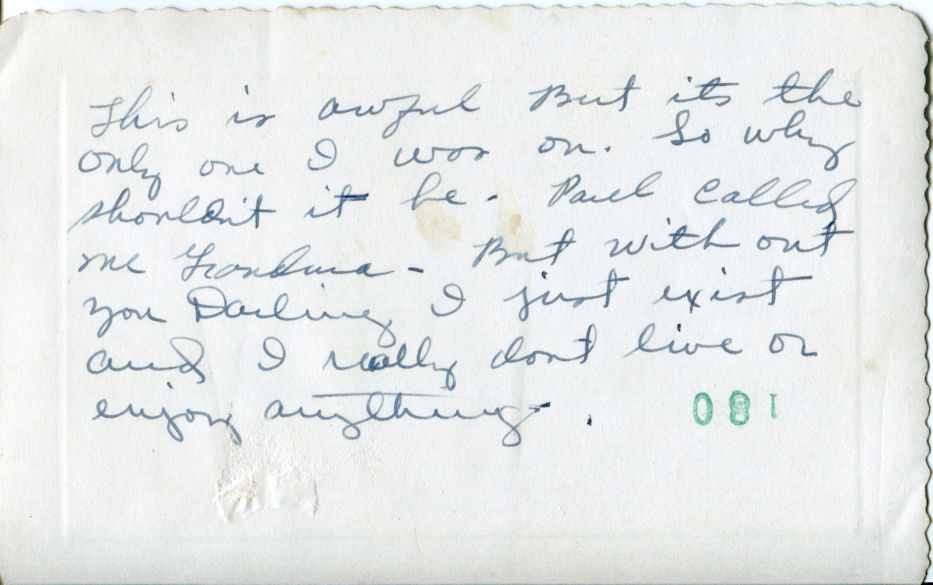 This is awful But its the
only one I was on. So why
shouldn't it be - Paul called
me Grandma - But with out
you Darling I just exist
and I really dont live or
enjoy anything.
081